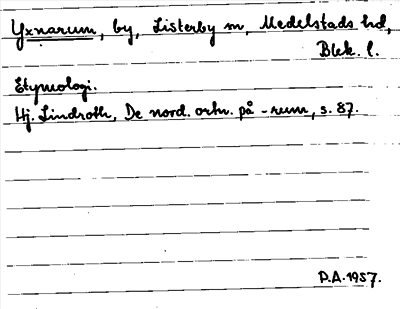 Yxnarum, by, Listerby sn, Medelstads hd,
Blek. l.
Etymologi.
Hj. Lindroth, De nord. ortn. på -rum, s. 87.
P.A. 1957.